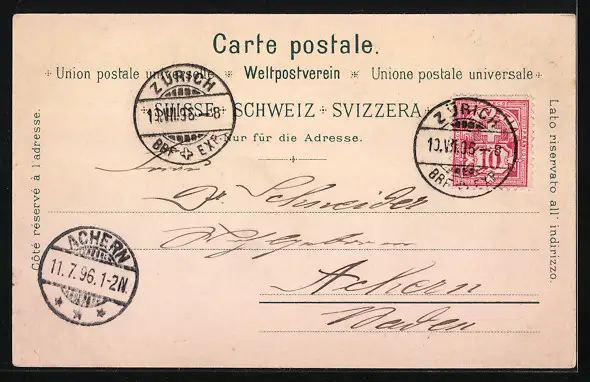 Carte postale.
Union postale universelle * Weltpostverein * Unione postale universale
SUISSE + SCHWEIZ + SVIZZERA
Nur für die Adresse.
Côté réservé à l'adresse.
Lato riservato all' indirizzo.
ZÜRICH
10.VII.96.-8
BRF. EXP.
ZÜRICH
10.VII.96.-8
BRF. EXP.
10
Herrn
Dr. Schneider
Achern
Baden
ACHERN
11.7.96.1-2N.